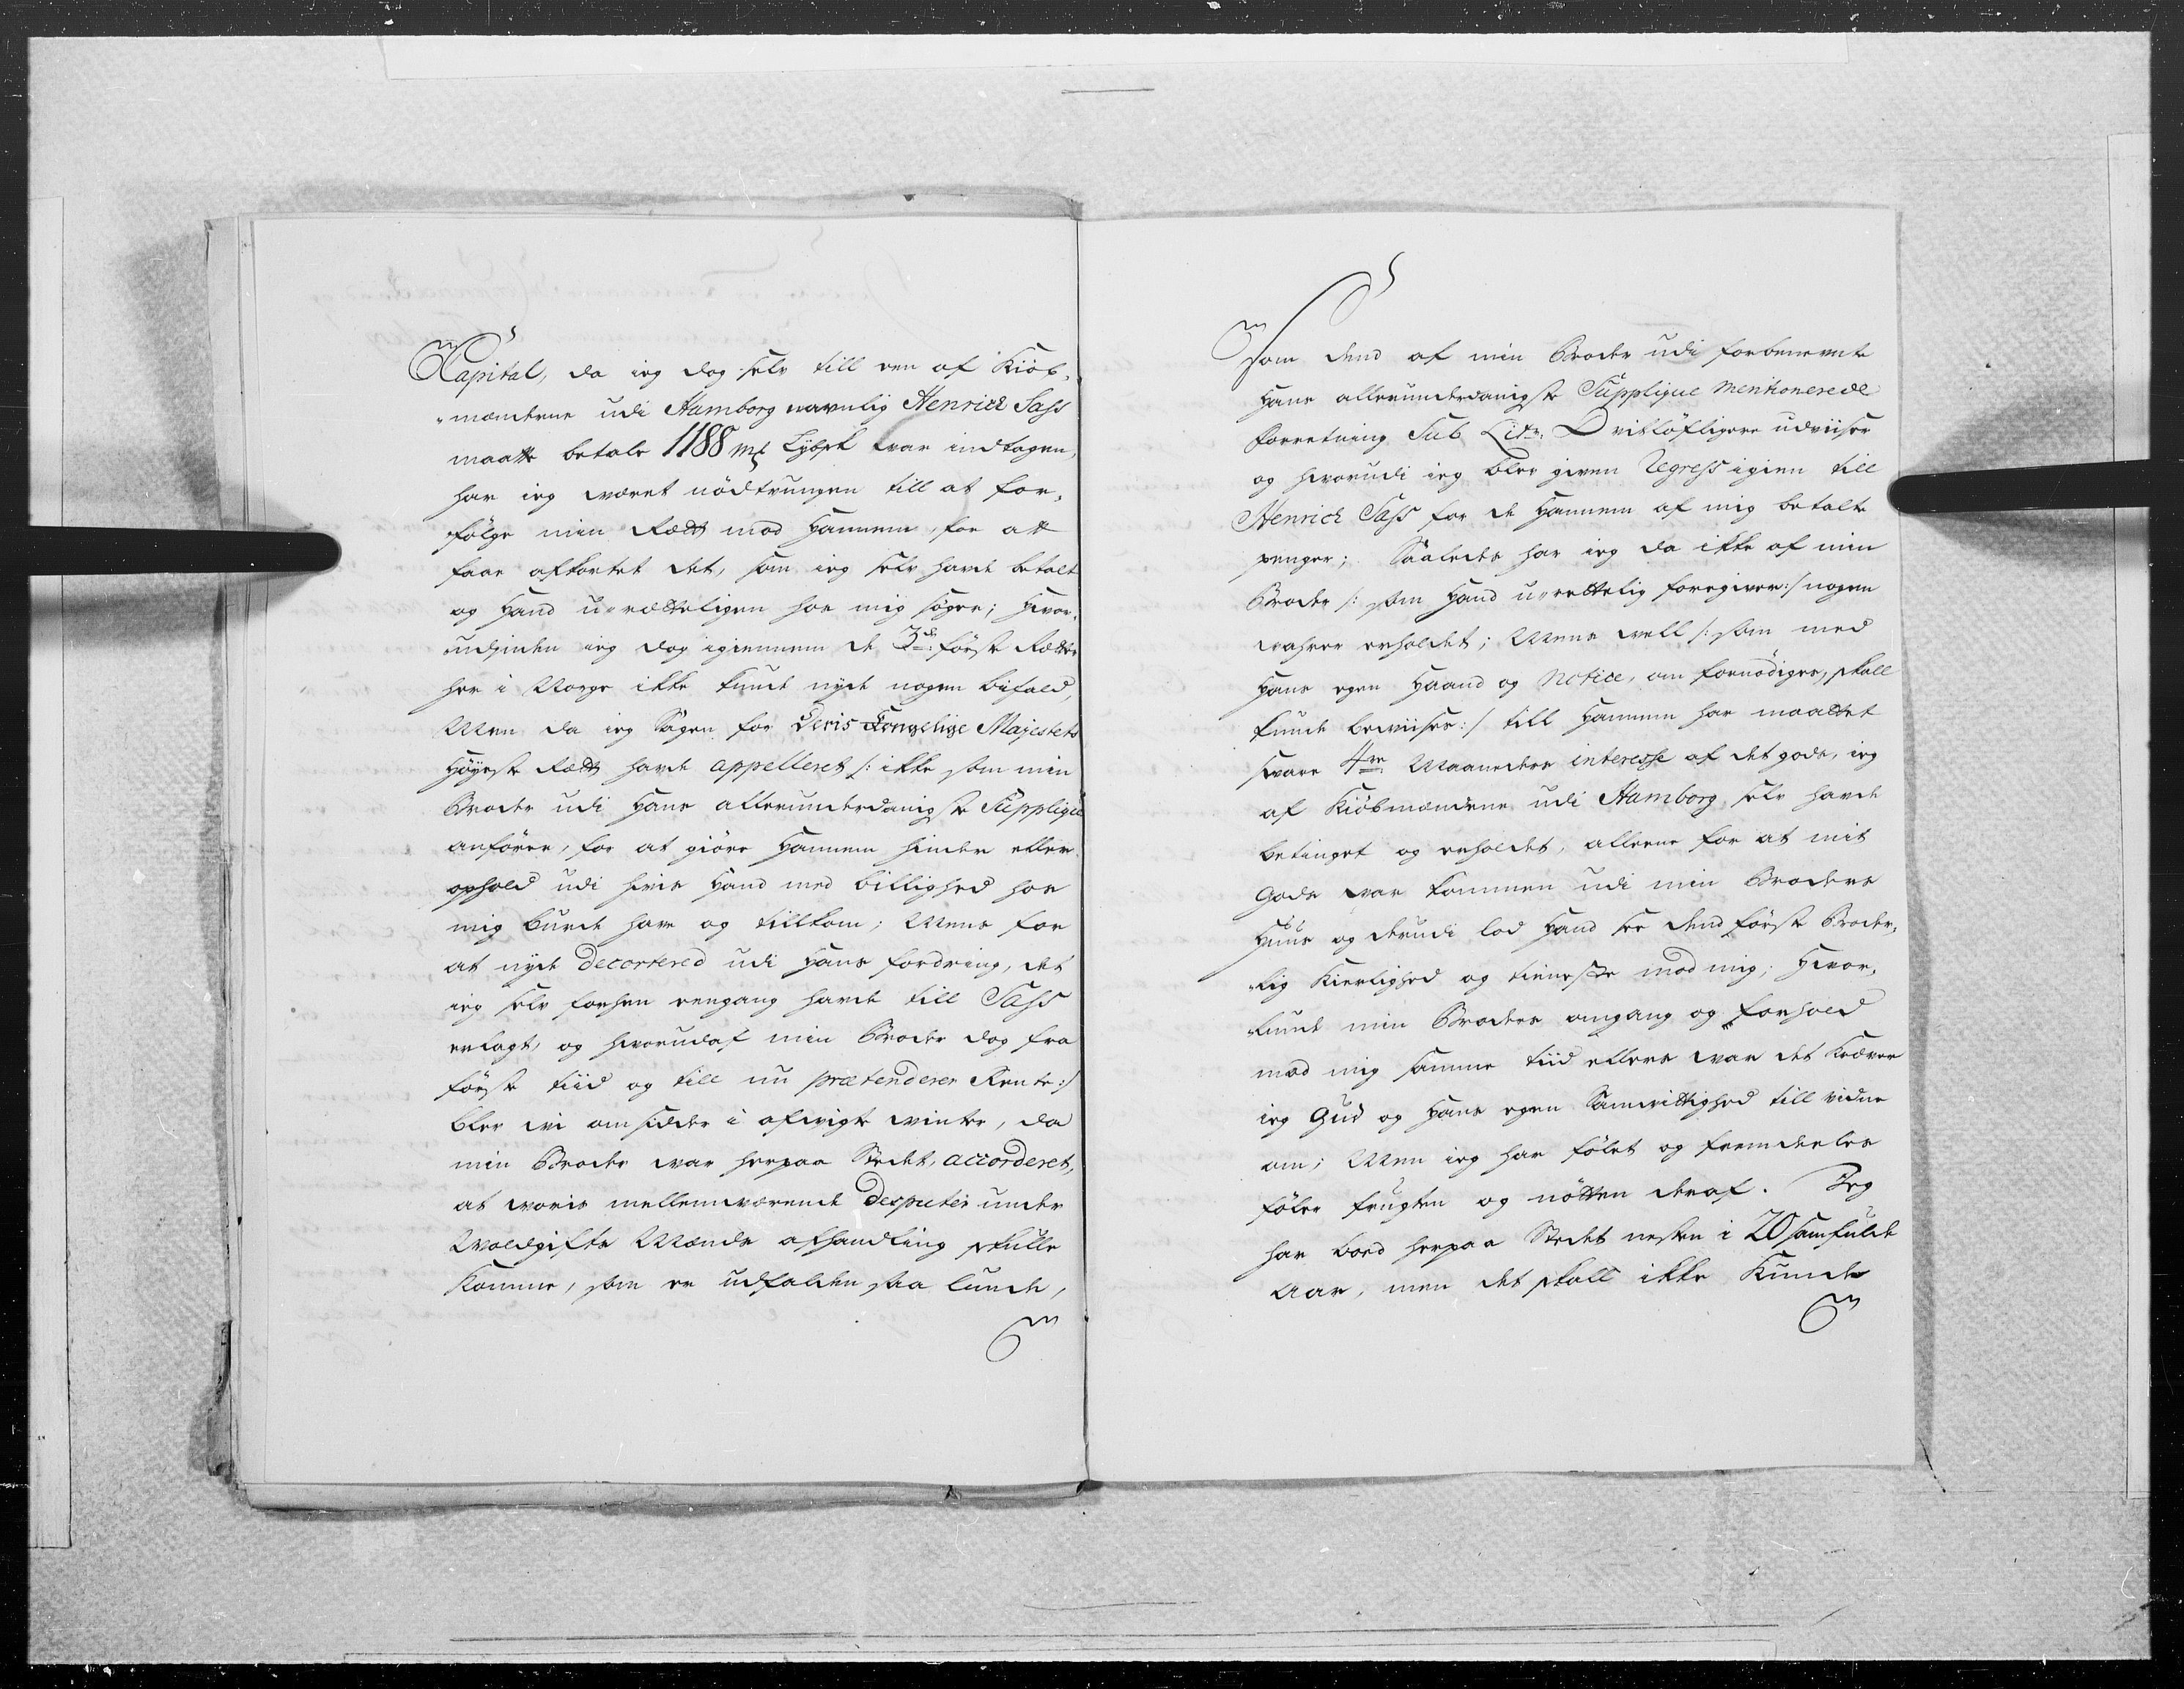 Capital, da ieg dog selv till een af Kiöb,
„mændene udi Hamborg navnlig Henrich Sass
maatte betale 1188 mk Lybsk var indtagen,
har ieg været nödtrungen till at for,
fölge min Rætt mod Hannem, for att
faae afkortet det, som ieg selv havde betalt
og Hand u-rætteligen hos mig söger; Hvor,
udinden ieg dog igiennem de 3de förste Rætter
her i Norge ikke kunde nyde nogen bifald,
Men da ieg Sagen for Deris Kongelige Majestets
Höyeste Rætt havde appelleret /: ikke som min
Broder udi Hans allerunderdanigste Supplique
anförer, for at giöre Hannem hinder eller
ophold udi hvis Hand med billighed hos
mig burde have og tillkom; Mens for
at nyde decortered udi Hans fordring, det
ieg selv forhen eengang havde till Sass
erlagt, og hvorudaf min Broder dog fra
förste tiid og till nu prætenderer Rente :/
blev vi omsidder i afvigte vinter, da
min Broder var herpaa Stedet, accorderet,
at voris mellemværende Desputer under
Woldgifts Mænds afhandling skulle
komme, som er udfalden saa lunde,
som dend af min Broder udi forbenevnte
Hans allerunderdanigste Supplique mentionerede
Forretning Sub Litr. D vitlöftigere udviiser
og hvorudi ieg blev given Regress igien till
Henrich Sass for de Hannem af mig betalte
penger; Saaledes har ieg da ikke af min
Broder /: som Hand u-rettelig foregiver :/ nogen
wahrer erholdet; Mens vell /: som med
Hans egen Haand og Notice, om fornödiges, skall
kunde beviises :/ till Hannem har maattet
svare 4re Maaneders interesse af det gods, ieg
af Kiöbmændene udi Hamborg selv havde
betinget og erholdet, alleene for at mit
Gods var kommen udi min Broders
Huus og derudi lod Hand see dend förste Broder,
„lig Kierlighed og tieneste mod mig; Hvor,
„lunde min Broders omgang og forhold
mod mig samme tiid ellers var det Kræver
ieg Gud og Hans egen Samvittighed till vidne
om; Men ieg har fölet og fremdeeles
föler frugten og nötten deraf. Jeg
har boed herpaa Stedet nesten i 20 samfulde
Aar, men det skall ikke Kunde